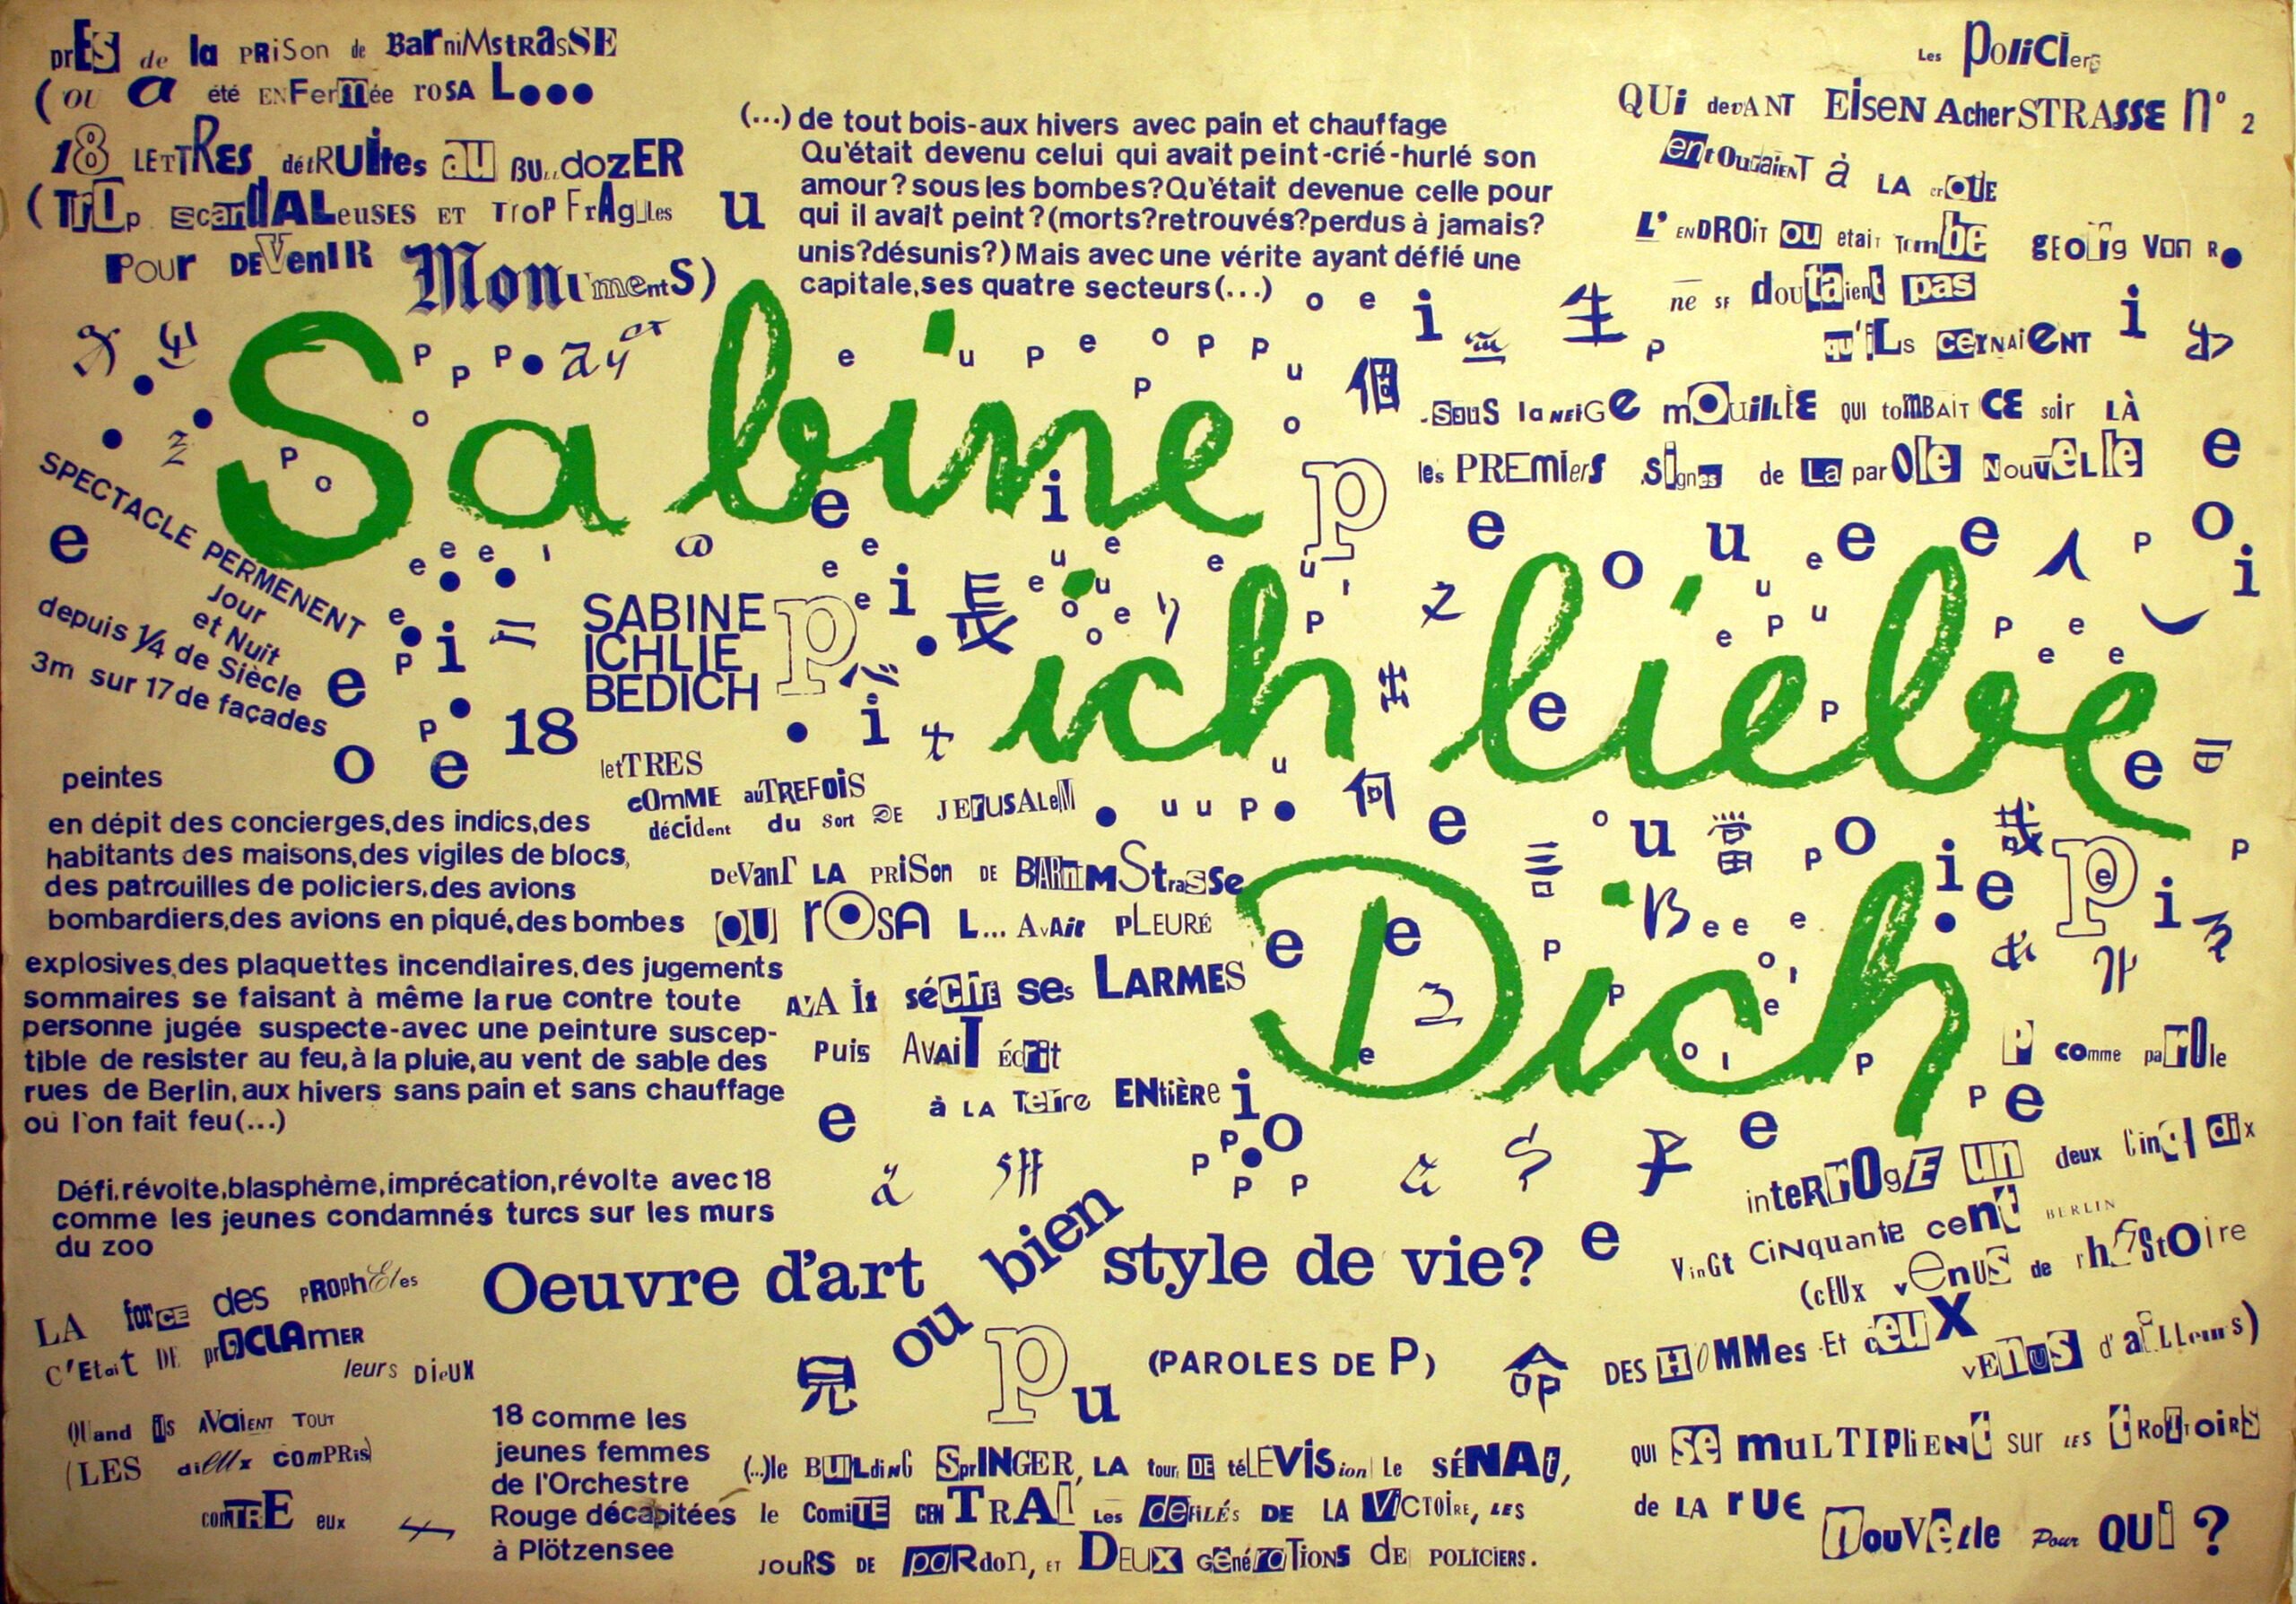 prES de la PRiSon de BarniMstRasSE
(OU a été ENFermée roSA L...
18 LETTRES détRUItes au BULLdozER
(TROp scandALeuSES ET TroP FrAgiles
Pour DEVenIR MonumentS)
(...) de tout bois-aux hivers avec pain et chauffage
Qu'était devenu celui qui avait peint-crié-hurlé son
amour? sous les bombes?Qu'était devenue celle pour
qui il avait peint?(morts?retrouvés?perdus à jamais?
unis?désunis?) Mais avec une vérite ayant défié une
capitale,ses quatre secteurs(...)
Les Policiers
QUi devANT EisEN AcherSTRASSE n° 2
entouraienT à LA croûtE
L' ENDROiT OU etait Tombe gEOrg Von R.
ne SE doutaient pas
qu'iLs cernaient
-SouS la NEiGe mOuillÈE QUI toMBAiT CE soir LÀ
les PREMiers Signes de La parOle NouvElle
Sabine
ich liebe
Dich
SPECTACLE PERMENENT
Jour
et Nuit
depuis ¼ de Siècle
3m sur 17 de façades
SABINE
ICHLIE
BEDICH
18
letTRES
cOmME auTREFOiS
décident du Sort DE JERUSALEM
DeVanT LA PRiSon DE BARnimStrasSe
OU rOSA L... AvAit PLEURÉ
séché ses LARMES
Puis AvaiT écrit
à LA Terre ENtiÈRe
peintes
en dépit des concierges,des indics,des
habitants des maisons,des vigiles de blocs,
des patrouilles de policiers,des avions
bombardiers,des avions en piqué,des bombes
explosives,des plaquettes incendiaires,des jugements
sommaires se faisant à même la rue contre toute
personne jugée suspecte-avec une peinture suscep-
tible de resister au feu,à la pluie,au vent de sable des
rues de Berlin,aux hivers sans pain et sans chauffage
où l'on fait feu(...)
Défi,révolte,blasphème,imprécation,révolte avec 18
comme les jeunes condamnés turcs sur les murs
du zoo
P comme paROle
inteRROgE un deux Cinq dix
VinGt CiNquante cent BERLIN
(cEUx vEnus de l'hiStOire
DES HOMMes Et ceuX vENuS d'aiLLeurs)
QUI se muLTIPliENt sur LES tROttoiRS
de LA rUE nouVelle Pour QUi ?
LA forCE des PROphètes
C'Etait DE prOCLAmER
leurs DieUX
QUand ils AVaiENT TOUT
(LES diEUx compRis)
conTRE eux
Oeuvre d'art
ou bien
style de vie?
(PAROLES DE P)
18 comme les
jeunes femmes
de l'Orchestre
Rouge décapitées
à Plötzensee
(...)le BUiLdiNG SprINGER, LA tour DE téLEVISion Le SÉNAt,
le ComiTE CENTRAL Les dEfiLÉs DE LA ViCTOIRE, LES
JOuRS DE paRdon, ET DEUX GénéraTiONS dE POLICIERS.